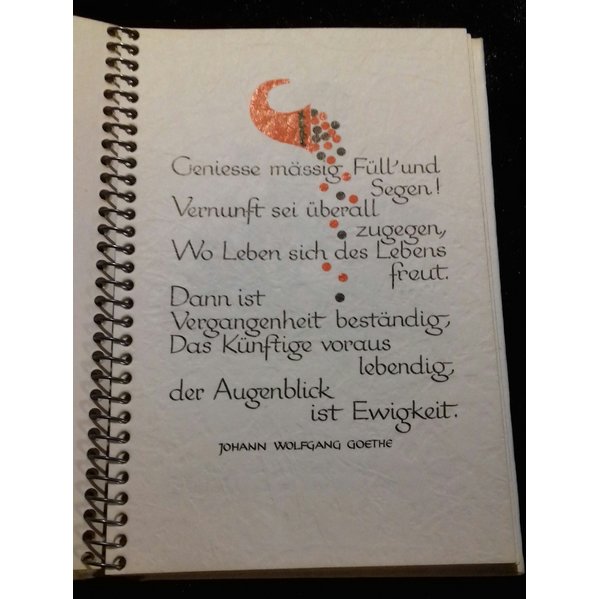 Geniesse mässig Füll' und
Segen!
Vernunft sei überall
zugegen,
Wo Leben sich des Lebens
freut.
Dann ist
Vergangenheit beständig,
Das Künftige voraus
lebendig,
der Augenblick
ist Ewigkeit.
JOHANN WOLFGANG GOETHE